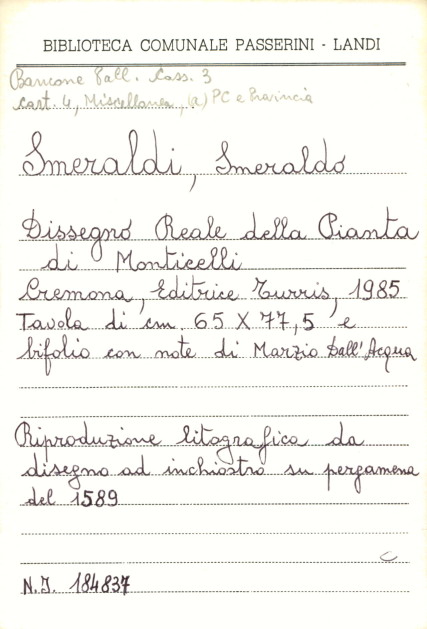 BIBLIOTECA COMUNALE PASSERINI - LANDI
Bancone Pall. Cass. 3
Cart. 4, Miscellanea, (a) PC e Provincia
Smeraldi, Smeraldo
Dissegno Reale della Pianta
di Monticelli
Cremona, Editrice Turris, 1985
Tavola di cm. 65 X 77,5 e
bifolio con note di Marzio Dall'Acqua
Riproduzione litografica da
disegno ad inchiostro su pergamena
del 1589
N.I. 184837